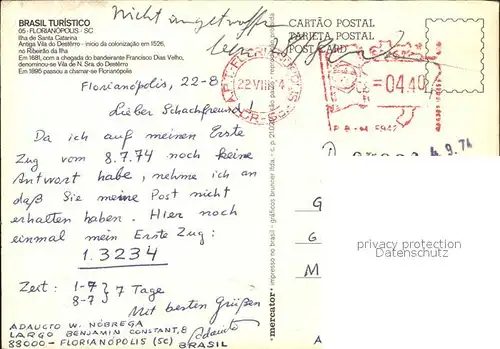 BRASIL TURÍSTICO
05 - FLORIANÓPOLIS - SC
Ilha de Santa Catarina
Antiga Vila do Destêrro - início da colonização em 1526,
no Ribeirão da Ilha
Em 1681, com a chegada do bandeirante Francisco Dias Velho,
denominou-se Vila de N. Sra. do Destêrro
Em 1895 passou a chamar-se Florianópolis
Nicht angetroffen
CARTÃO POSTAL
TARJETA POSTAL
POST CARD
22 VIII 74
=04.40
Florianópolis, 22-8
Lieber Schachfreund!
Da ich auf meinen Erste
Zug vom 8.7.74 noch keine
Antwort habe, nehme ich an
daß Sie meine Post nicht
erhalten haben. Hier noch
einmal mein Erste Zug:
1. 3234
Zeit: 1-7
8-7 } 7 Tage
Mit besten Grüßen
Adauto
ADAUCTO W. NÓBREGA
LARGO BENJAMIN CONSTANT, 8
88000 - FLORIANÓPOLIS (SC) BRASIL
mercator
impresso no brasil - gráficos brunner ltda. - c. p.
4.9.74
G
G
M
A
proprietary
Datenschutz